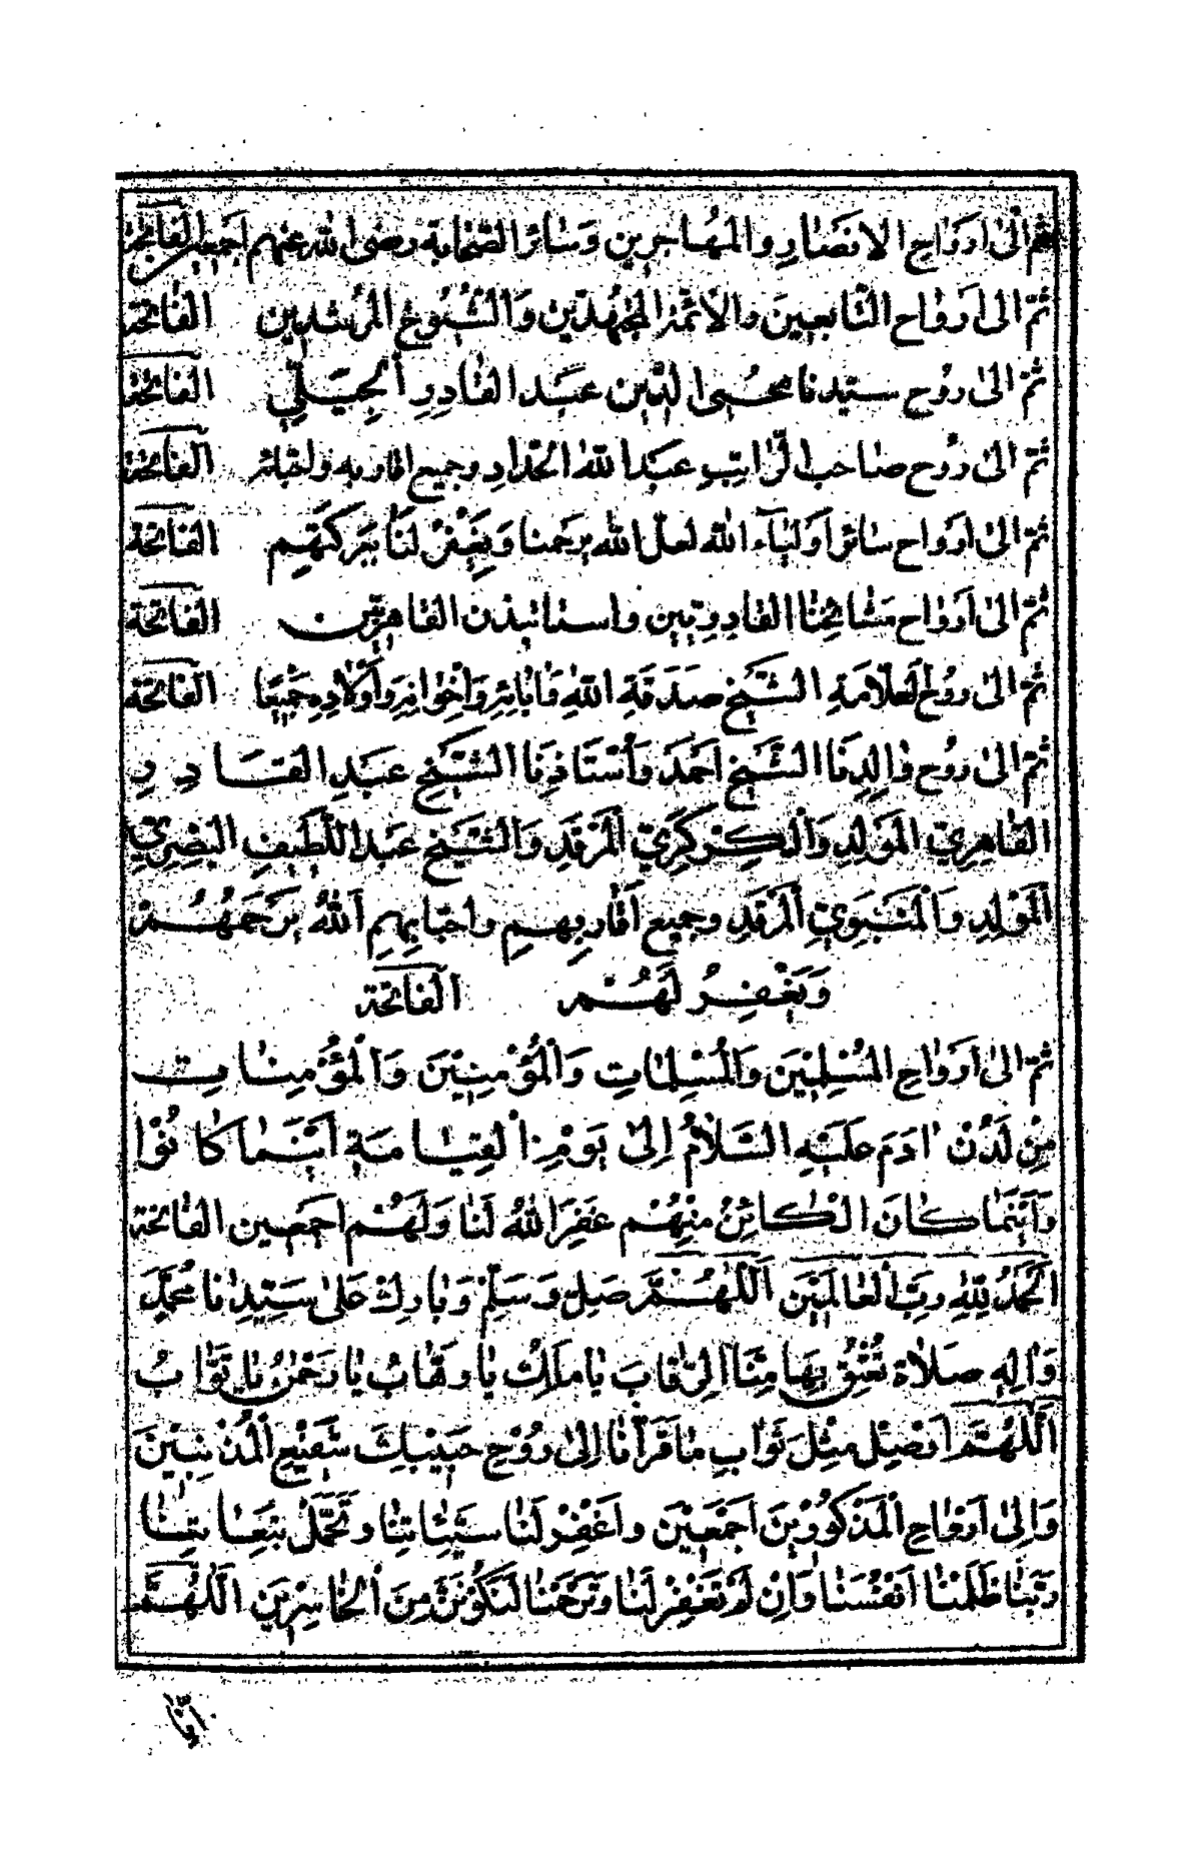 ثم الى ارواح الانصار والمهاجرين وسائر الصحابة رضى الله عنهم اجمعين الفاتحة
ثم الى ارواح التابعين والائمة المجتهدين والشيوخ المرشدين الفاتحة
ثم الى روح سيدنا محيى الدين عبد القادر الجيلي الفاتحة
ثم الى روح صاحب الراتب عبد الله الحداد وجميع اقاربه الفاتحة
ثم الى ارواح سائر اولياء الله لعل الله يرحمنا ويغفر لنا ببركتهم الفاتحة
ثم الى ارواح مشائخنا القادريين واساتيذن القاهريين الفاتحة
ثم الى روح العلامة الشيخ صدقة الله وابائه واخوانه واولاده جميعا الفاتحة
ثم الى روح والدنا الشيخ احمد واستاذنا الشيخ عبد القادر
القاهري المولد والكركري المرقد والشيخ عبد اللطيف البصري
المولد المرقد وجميع اقاربهم واحبابهم الله يرحمهم
ويغفر لهم الفاتحة
ثم الى ارواح المسلمين والمسلمات والمؤمنين والمؤمنات
من لدن ادم عليه السلام الى يوم القيامة اينما كانوا
واينما كان الكائن منهم غفر الله لنا ولهم اجمعين الفاتحة
الحمد لله رب العالمين اللهم صل وسلم وبارك على سيدنا محمد
واله صلاة تعتق بها منا الرقاب يا ملك يا وهاب يا رحمن يا تواب
اللهم اوصل مثل ثواب ما قرأنا الى روح حبيبك شفيع المذنبين
والى ارواح المذكورين اجمعين واغفر لنا سيئاتنا وتحمل تبعاتنا
ربنا ظلمنا انفسنا وان لم تغفر لنا وترحمنا لنكونن من الخاسرين اللهم
انا